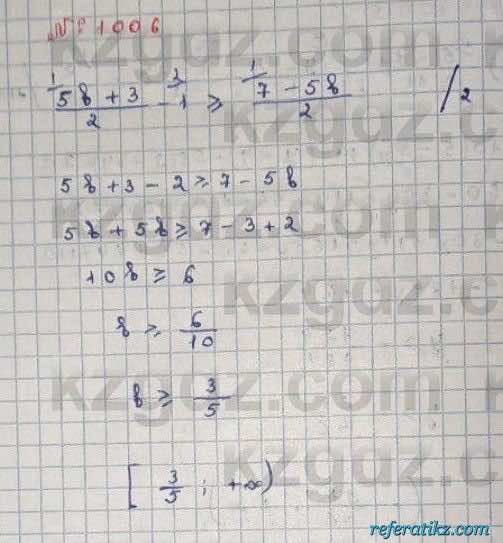 № 1006
(5b + 3)/2 - 1 ≥ (7 - 5b)/2 /2
5b + 3 - 2 ≥ 7 - 5b
5b + 5b ≥ 7 - 3 + 2
10b ≥ 6
b ≥ 6/10
b ≥ 3/5
[3/5 ; +∞)
referatikz.com